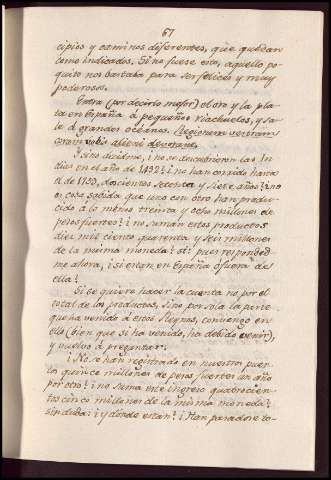 67
cipios y caminos diferentes, que quedan
como indicados. Si no fuese esto, aquello po-
quito nos bastaba para ser felices y muy
poderosos.
Entra (por decirlo mejor) el oro y la pla-
ta en España á pequeños riachuelos, y sa-
le á grandes oceanos. Regionem vestram
coram vobis alieni devorant.
Y sino diganme, ¿no se descubrieron las In-
dias en el año de 1492? ¿no han corrido hasta
el de 1759, doscientos sesenta y siete años? ¿no
es cosa sabida que uno con otro han produ-
cido á lo menos treinta y ocho millones de
pesos fuertes? ¿no suman estos productos
diez mil ciento quarenta y seis millones
de la misma moneda? Sí: pues responded-
me ahora, ¿si estan en España ó fuera de
ella?
Si se quiere hacer la cuenta no por el
total de los productos, sino por sola la parte
que ha venido á estos Reynos, convengo en
ello (bien que si ha venido, ha debido venir),
y vuelvo á preguntar.
¿No se han registrado en nuestros puer-
tos quince millones de pesos fuertes un año
por otro? ¿no suma este ingreso quatrocien-
tos cinco millones de la misma moneda?
sin duda: ¿y dónde estan? ¿Han parado es to-